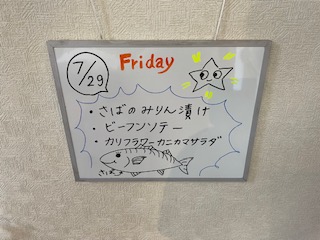 7/29
Friday
・さばのみりん漬け
・ビーフンソテー
・カリフラワーカニカマサラダ
さば